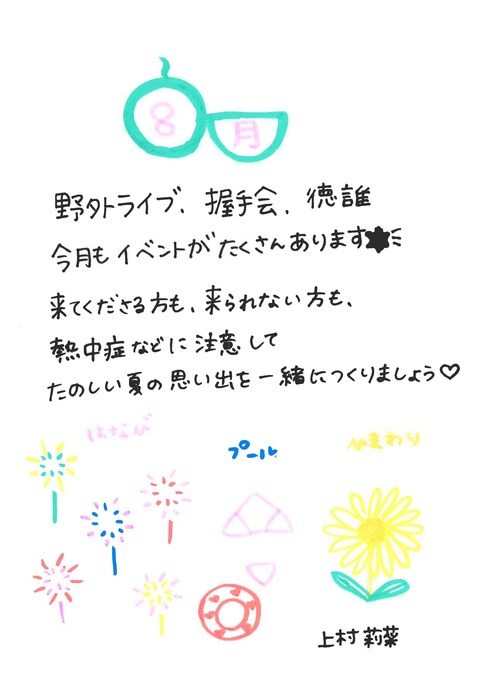 8月
野外ライブ、握手会、徳誰
今月もイベントがたくさんあります
来てくださる方も、来られない方も、
熱中症などに注意して
たのしい夏の思い出を一緒につくりましょう♡
はなび
プール
ひまわり
上村莉菜